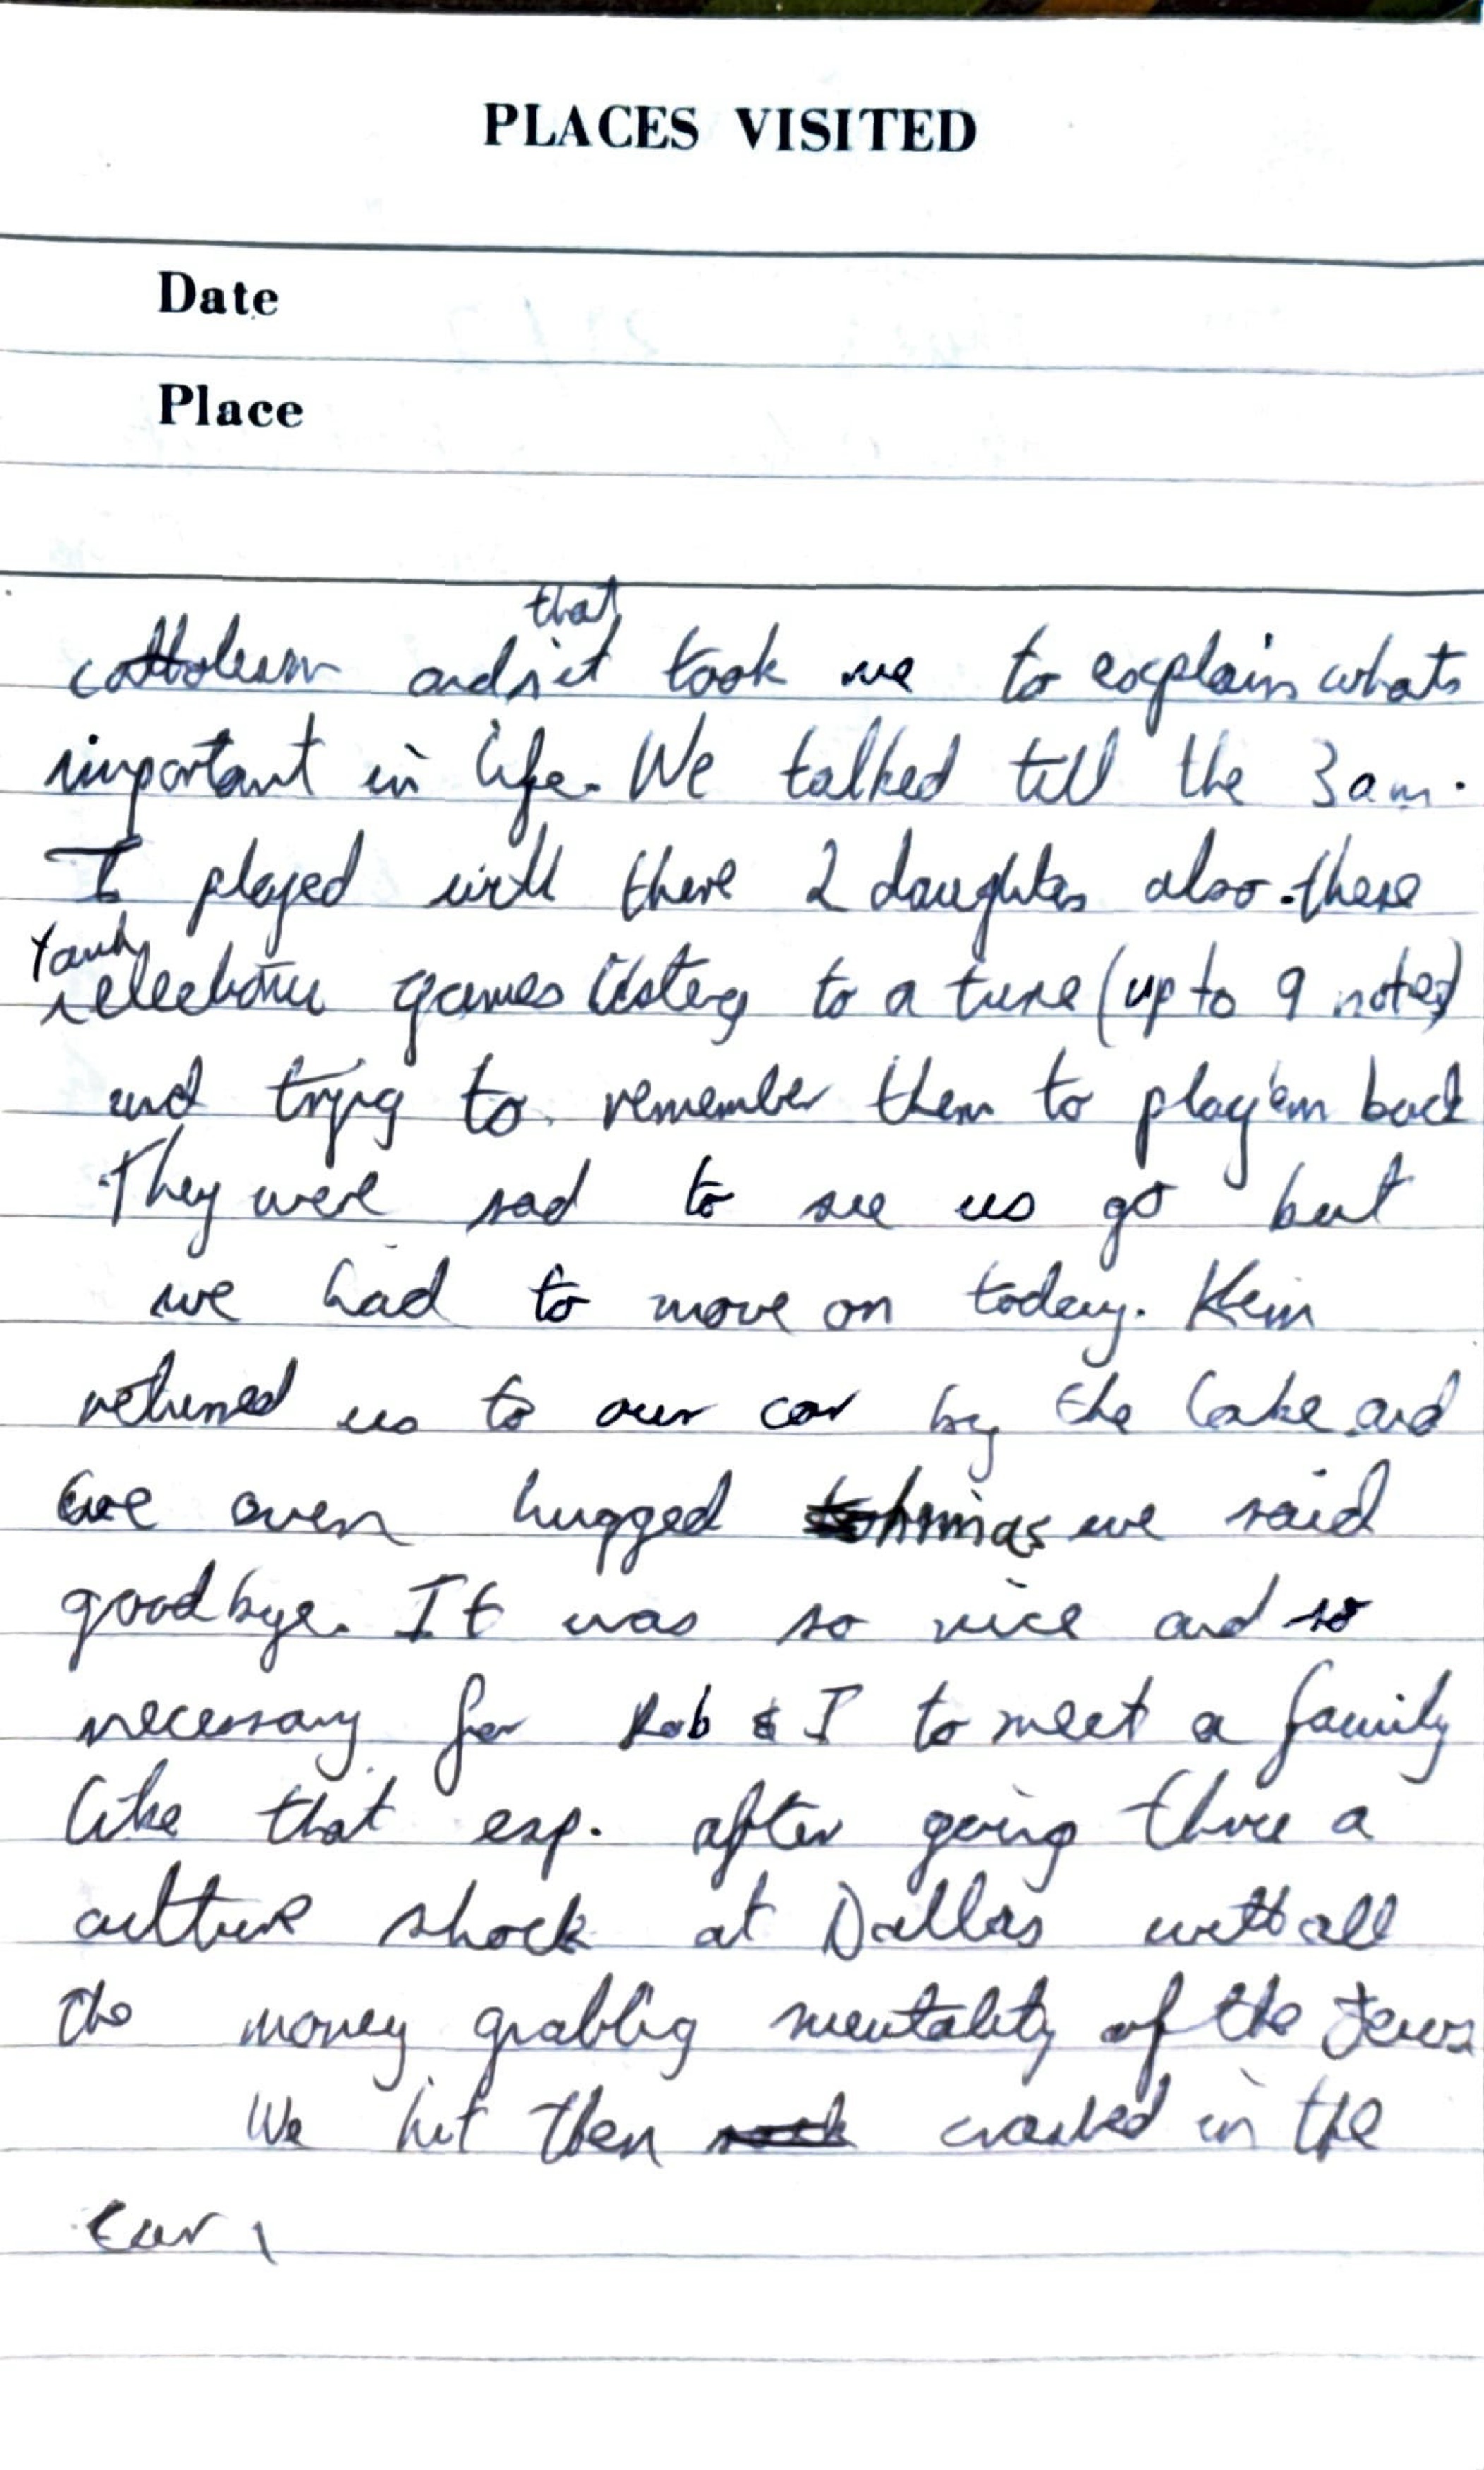 PLACES VISITED
Date
Place
that
and it took me to explain whats
important in life. We talked till the 3am.
I played with there 2 daughters also. these
electronic games listeng to a tune (up to 9 notes)
and tryng to remember them to play'em back
They were sad to see us go but
we had to move on today. Kein
returned us to our car by the lake and
we even hugged him as we said
goodbye. It was so nice and so
necessary for Rob & I to meet a family
like that esp. after going threw a
culture shock at Dallas with all
the money grabbig mentality of the
We hit then in the
car